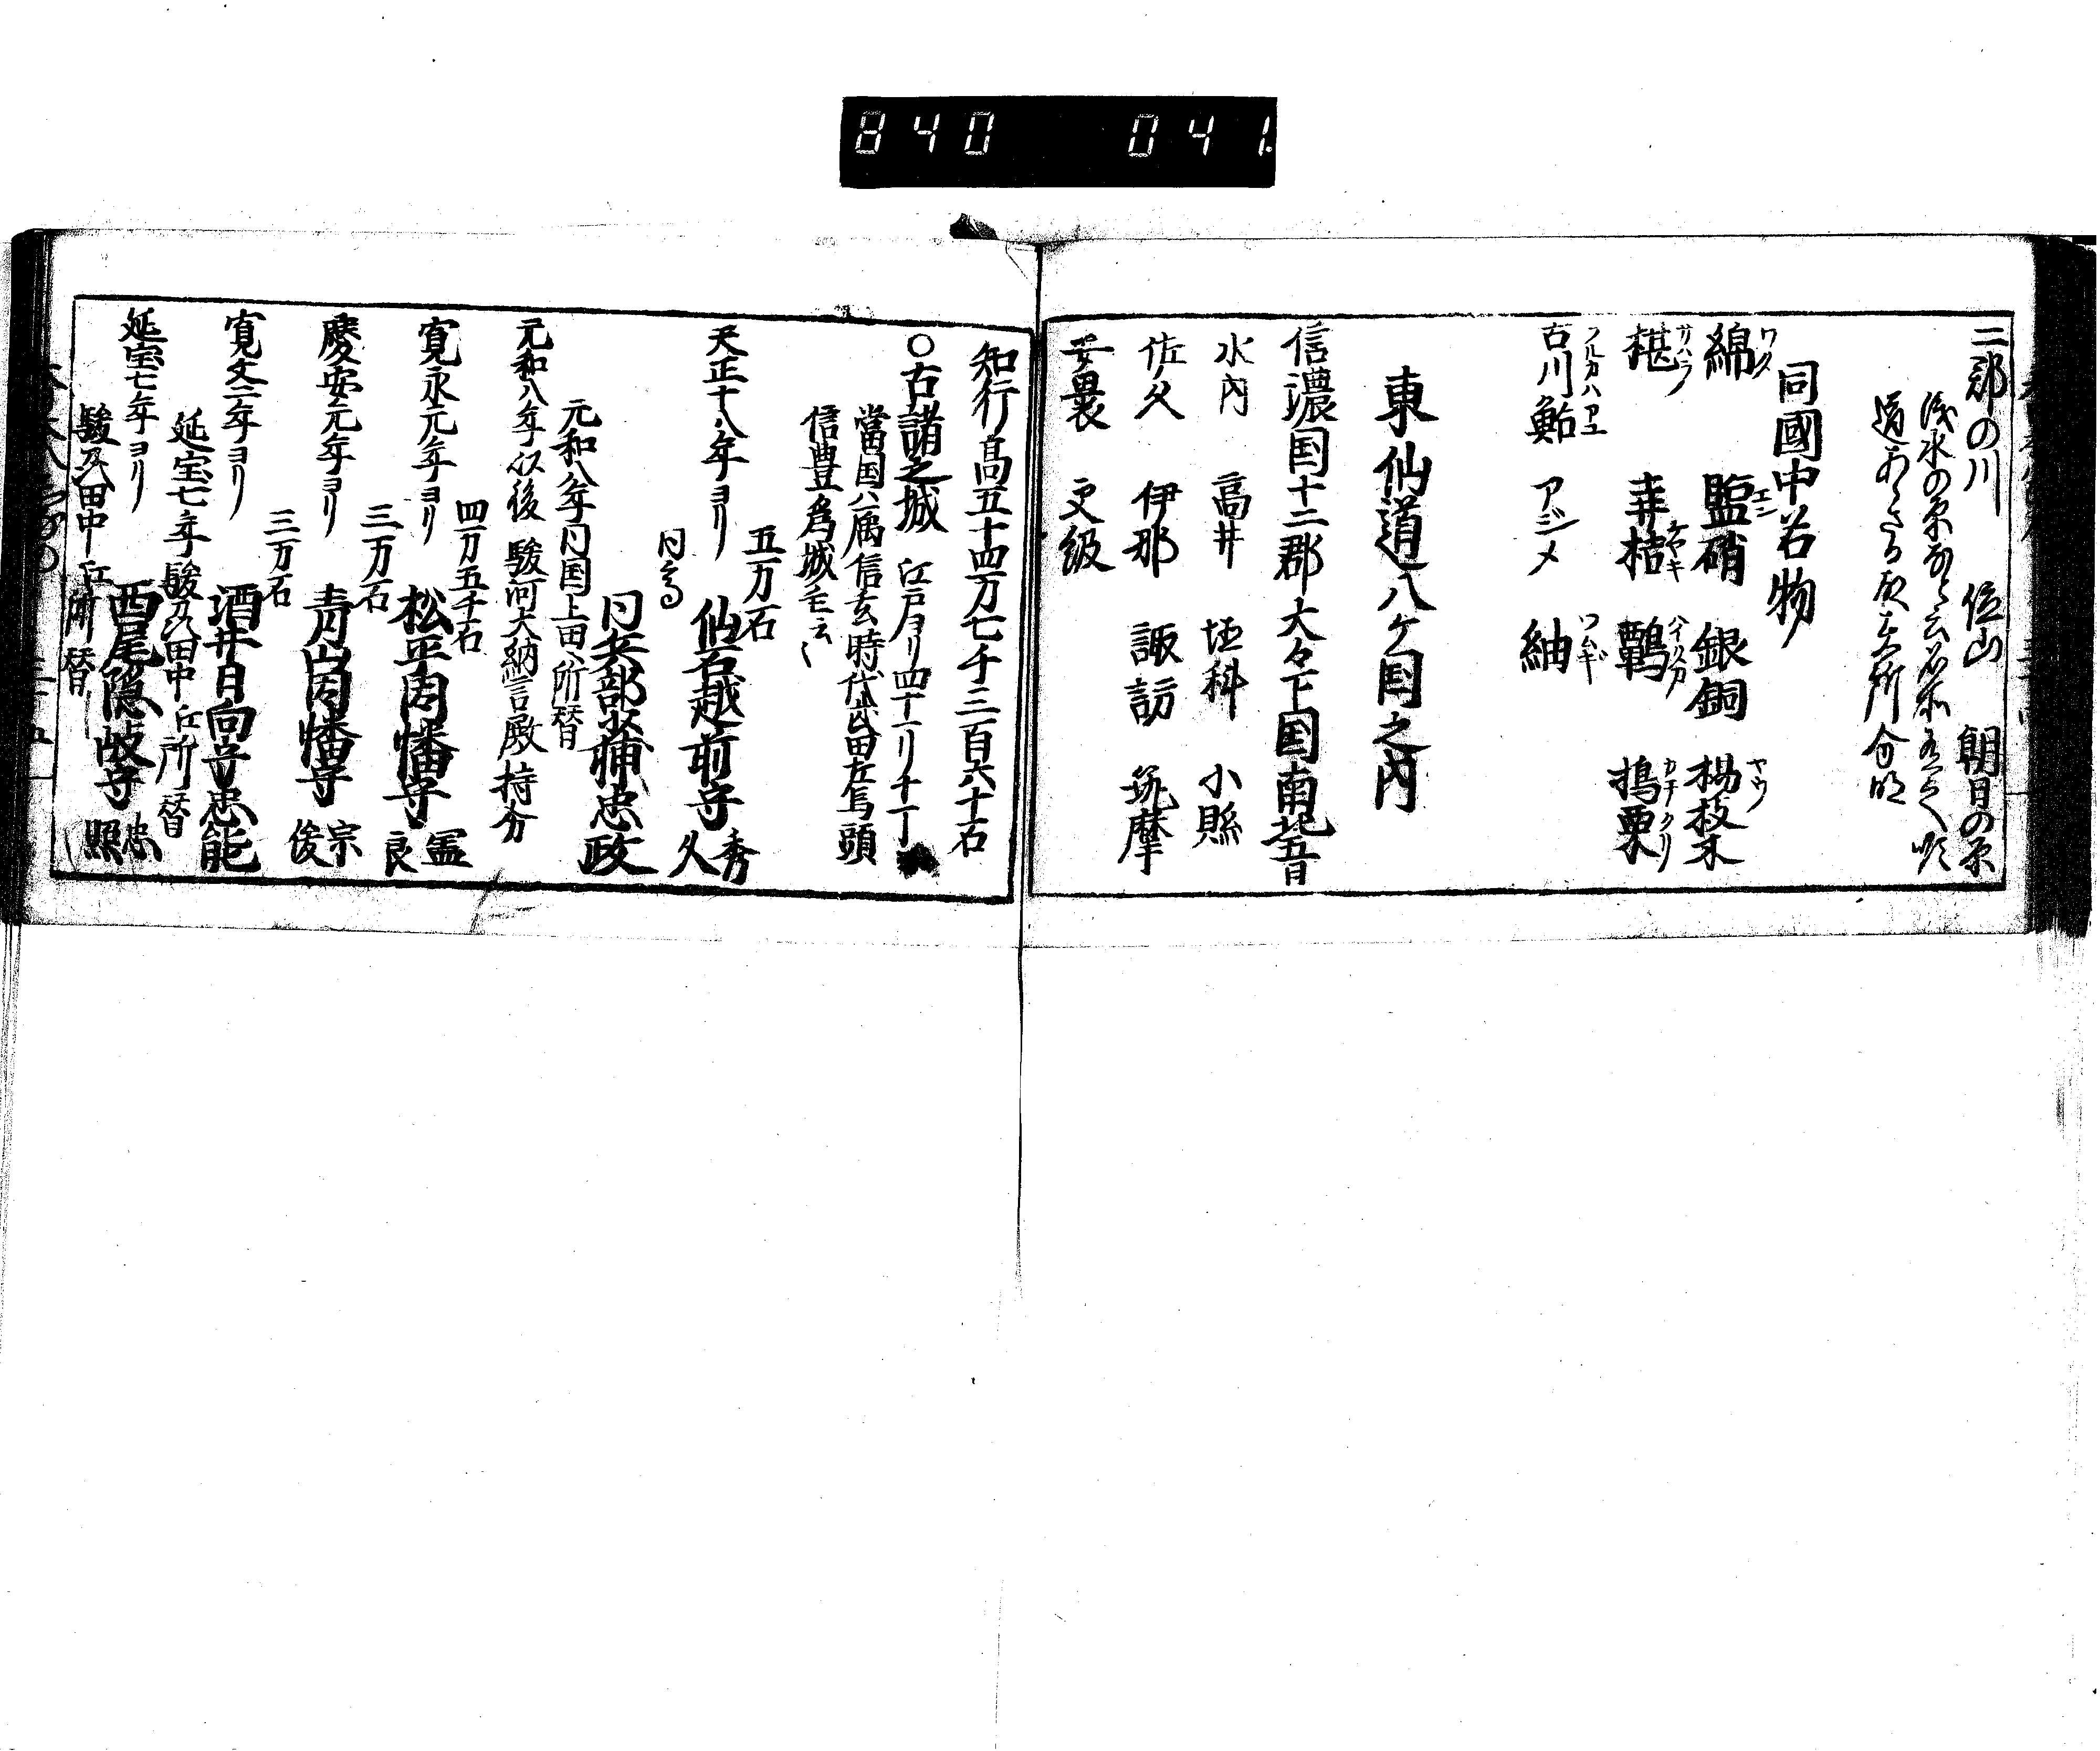 840 041
二郡の川 位山 朝日の原
同國中名物
綿 ワタ 塩硝 エン 銀銅 楊枝木 ヤウ
椹 サハラ 桔 ケヤキ 鷂 ハイタカ 搗栗 カチクリ
古川鮎 フルカハアユ アジメ 紬 ツムギ
東仙道八ケ国之内
信濃国十二郡大々下国南北五日
水内 高井 埴科 小縣
佐久 伊那 諏訪 筑摩
安曇 更級
知行高五十四万七千三百六十石
○古諸之城 江戸ヨリ四十二リ十一丁
當国ハ属信玄時代武田左馬頭
信豊為城主云〻
五万石
天正十八年ヨリ 仙石越前守 秀久
同高
同兵部少輔忠政
元和八年同国上田ヘ所替
元和八年以後 駿河大納言殿持分
四万五千石
寛永元年ヨリ 松平因幡守 良
三万石
慶安元年ヨリ 青山因幡守 宗俊
三万石
寛文二年ヨリ 酒井日向守忠能
延宝七年駿刕田中江所替
延宝七年ヨリ 西尾隠岐守 忠照
駿刕田中江所替